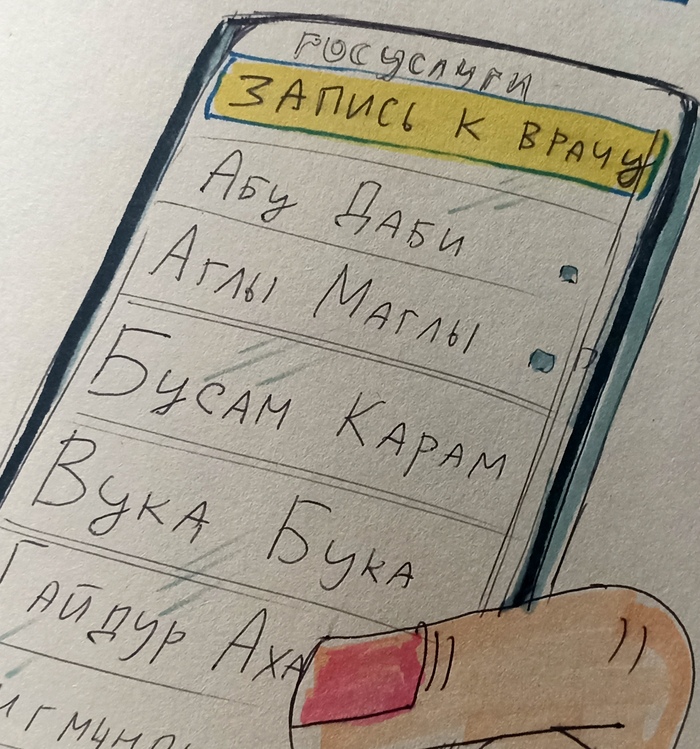 госуслуги
ЗАПИСЬ К ВРАЧУ
Абу Даби
Аглы Маглы
Бусам Карам
Вука Бука
Гайдур